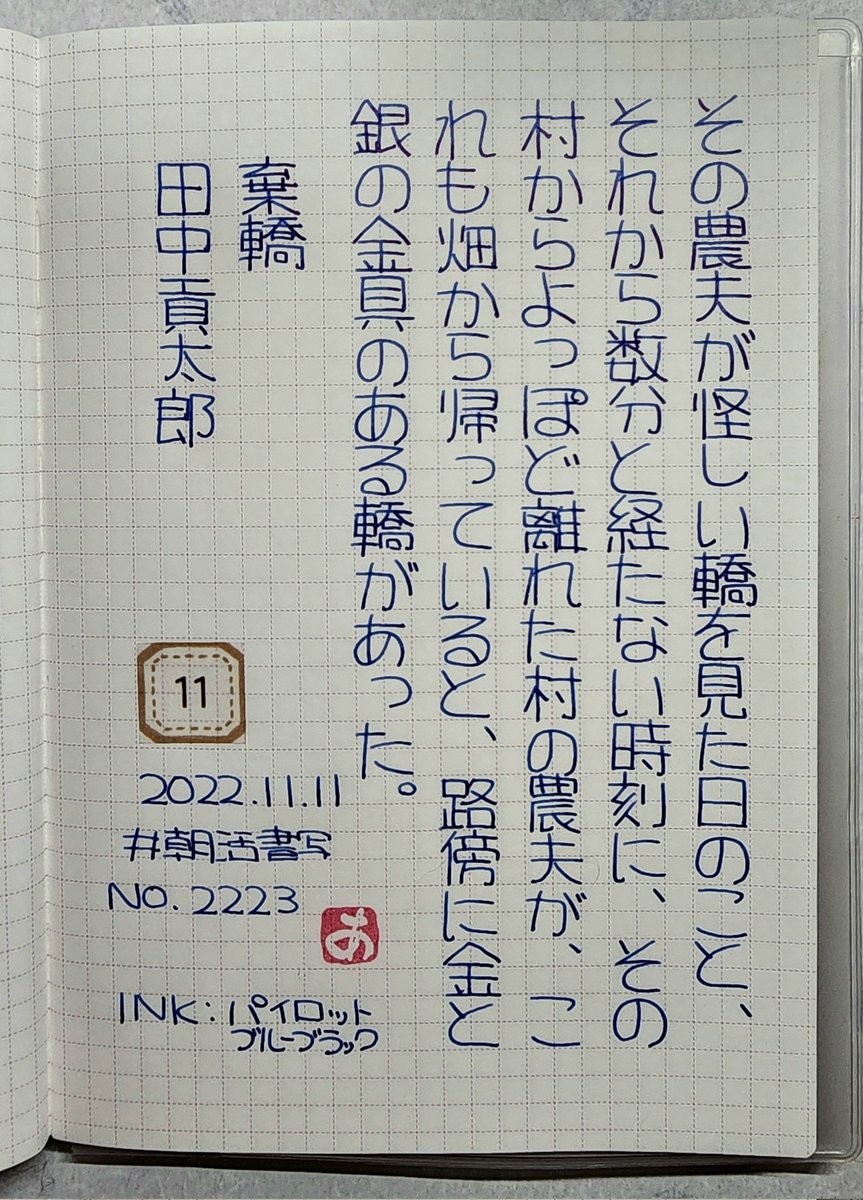 その農夫が怪しい轎を見た日のこと、
それから数分と経たない時刻に、その
村からよっぽど離れた村の農夫が、こ
れも畑から帰っていると、路傍に金と
銀の金具のある轎があった。
棄轎
田中貢太郎
11
2022.11.11
#朝活書写
NO. 2223
あ
INK: パイロット
ブルーブラック